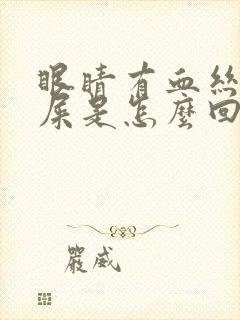 眼睛有血絲
屎是怎麼回
嚴威